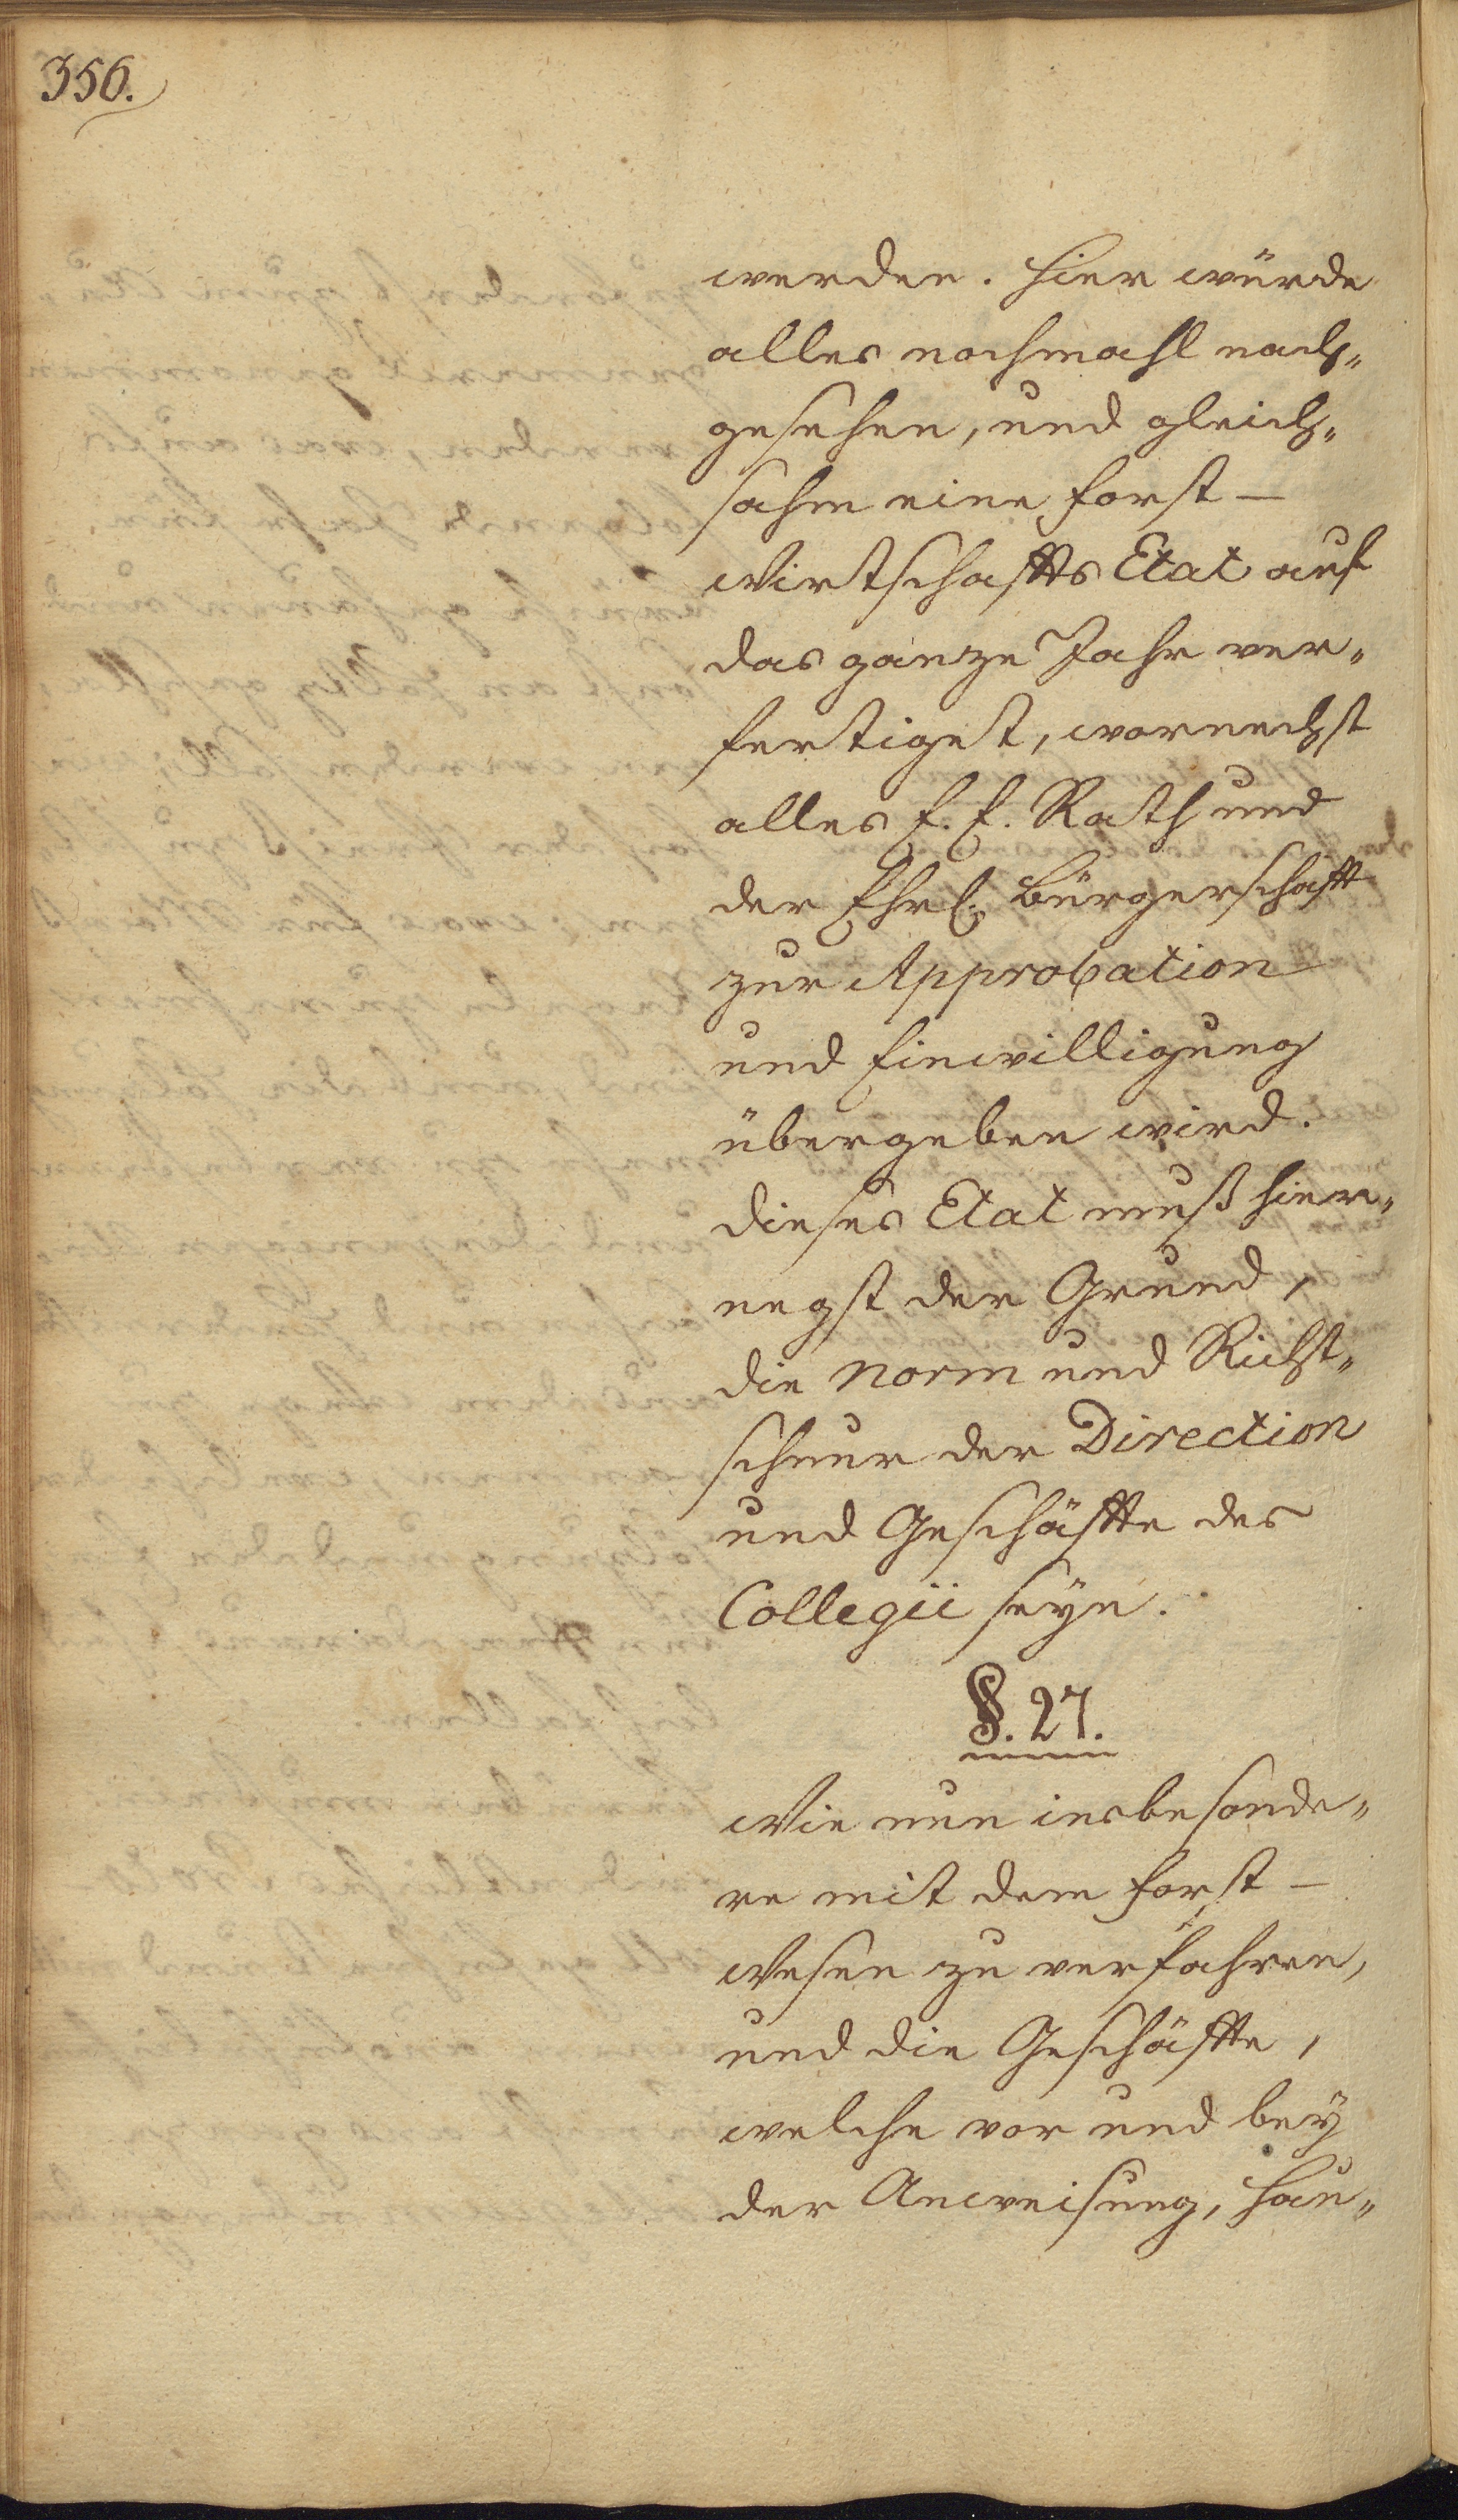 356.
werden. Hier würde
alles nochmahl nach„
gesehen, und gleich„
sahm eine Forst-
Wirtschaffts Etat auf
das ganze Jahr ver„
fertiget, wornechst
alles E. E. Rath und
der Ehrl. Bürgerschafft
zur Approbation
und Einwilligung
übergeben wird.
Dieses Etat muß hier„
negst der Grund,
die Norm und Richt„
schnur der Direction
und Geschäffte des
Collegii seÿn.
§. 27.
Wie nun insbesonde„
re mit dem Forst-
Wesen zu verfahren,
und die Geschäffte,
welche vor und beÿ
der Anweisung, Hau„